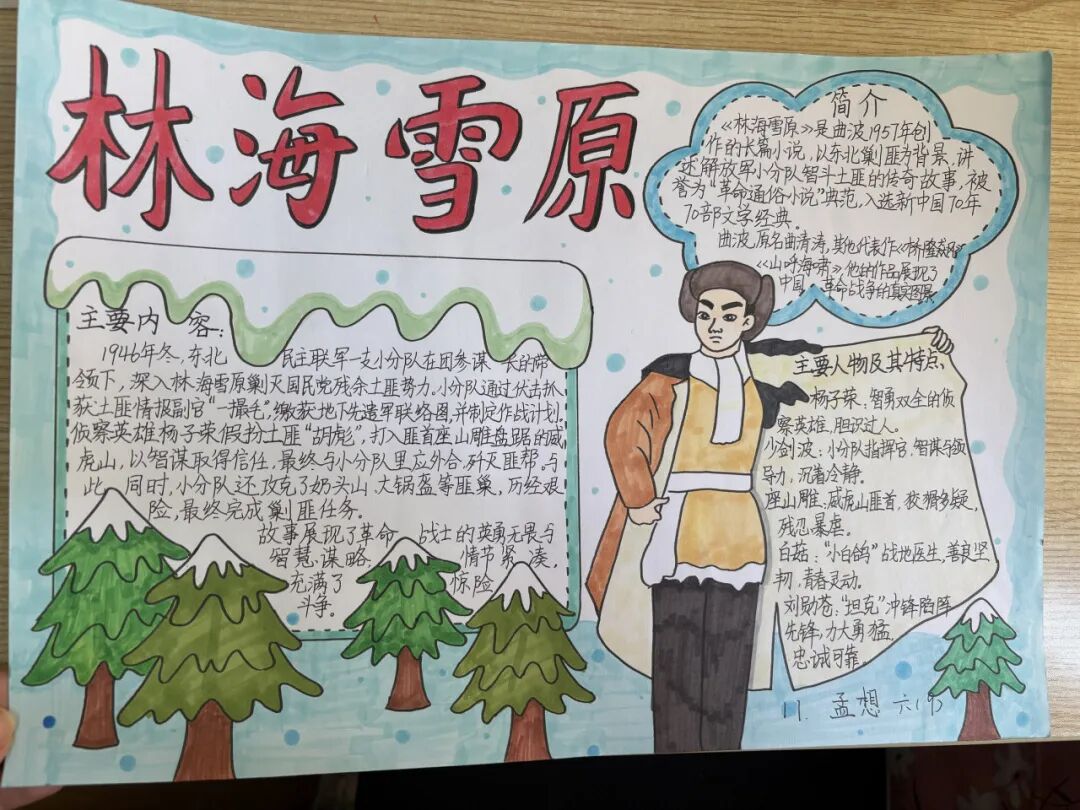 林海雪原
简介
《林海雪原》是曲波1957年创
作的长篇小说，以东北剿匪为背景，讲
述解放军小分队智斗土匪的传奇故事，被
誉为“革命通俗小说”典范，入选新中国70年
70部文学经典。
曲波，原名曲清涛，其他代表作《桥隆飙》
《山呼海啸》，他的作品展现了
中国 革命战争的真实图景
主要内容：
1946年冬，东北 民主联军一支小分队在团参谋长的带
领下，深入林海雪原剿灭国民党残余土匪势力。小分队通过伏击抓
获土匪情报副官“一撮毛”，缴获地下先遣军联络图，并制定作战计划。
侦察英雄杨子荣假扮土匪“胡彪”，打入匪首座山雕盘踞的威
虎山，以智谋取得信任，最终与小分队里应外合，歼灭匪帮。与
此 同时，小分队还攻克了奶头山、大锅盔等匪巢，历经艰
险，最终完成剿匪任务。
故事展现了革命 战士的英勇无畏与
智慧谋略， 情节紧凑，
充满了 惊险
斗争。
主要人物及其特点、
杨子荣：智勇双全的侦
察英雄，胆识过人。
少剑波：小分队指挥官，智谋与领
导力，沉着冷静。
座山雕：威虎山匪首，狡猾多疑，
残忍暴虐。
白茹：“小白鸽”战地医生，善良坚
韧，青春灵动。
刘勋苍：“坦克”冲锋陷阵
先锋，力大勇猛，
忠诚可靠。
11. 孟想 六(9)